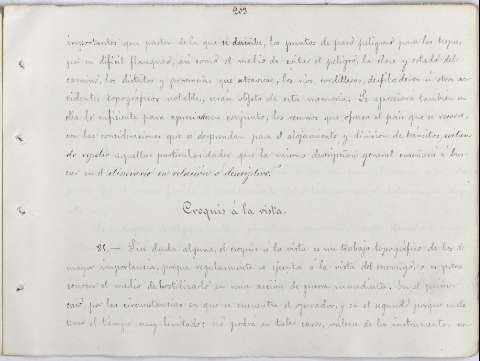 203
importantes que parten de la que se describe, los puntos de paso peligroso para las tropas,
por su difícil flanqueo, así como el medio de evitar el peligro, la clase y estado del
camino, los distritos y provincias que atraviesa, los ríos, cordilleras, desfiladeros ú otros ac-
cidentes topográficos notables, serán objeto de esta memoria. Se apreciará también en
ella lo suficiente para apreciar en conjunto, los recursos que ofrece el país que se recorre,
con las consideraciones que se desprendan para el alojamiento y división de tránsitos,
do repetir aquellas particularidades que la misma descripción general á bus-
car en el itinerario en relación o descriptivo."
Croquis á la vista.
83.— Sin duda alguna, el croquis á la vista es un trabajo topográfico de los de
mayor importancia, porque regularmente se ejecuta á la vista del enemigo, ó se para
conocer el medio de hostilizarlo en una acción de guerra inmediata. En el primer
caso por las circunstancias en que se encuentra el operador, y en el segundo porque en él
tiene el tiempo muy limitado: no podrá en tales casos, valerse de los instrumentos